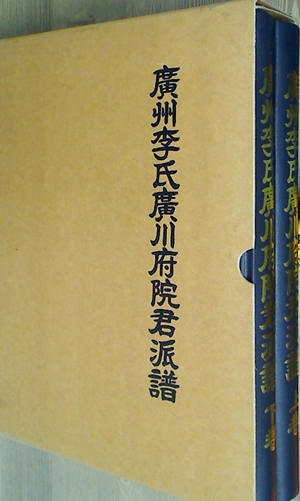 廣州李氏廣川府院君派譜
廣州李氏廣川府院君派譜 下卷
廣州李氏廣川府院君派譜 上卷